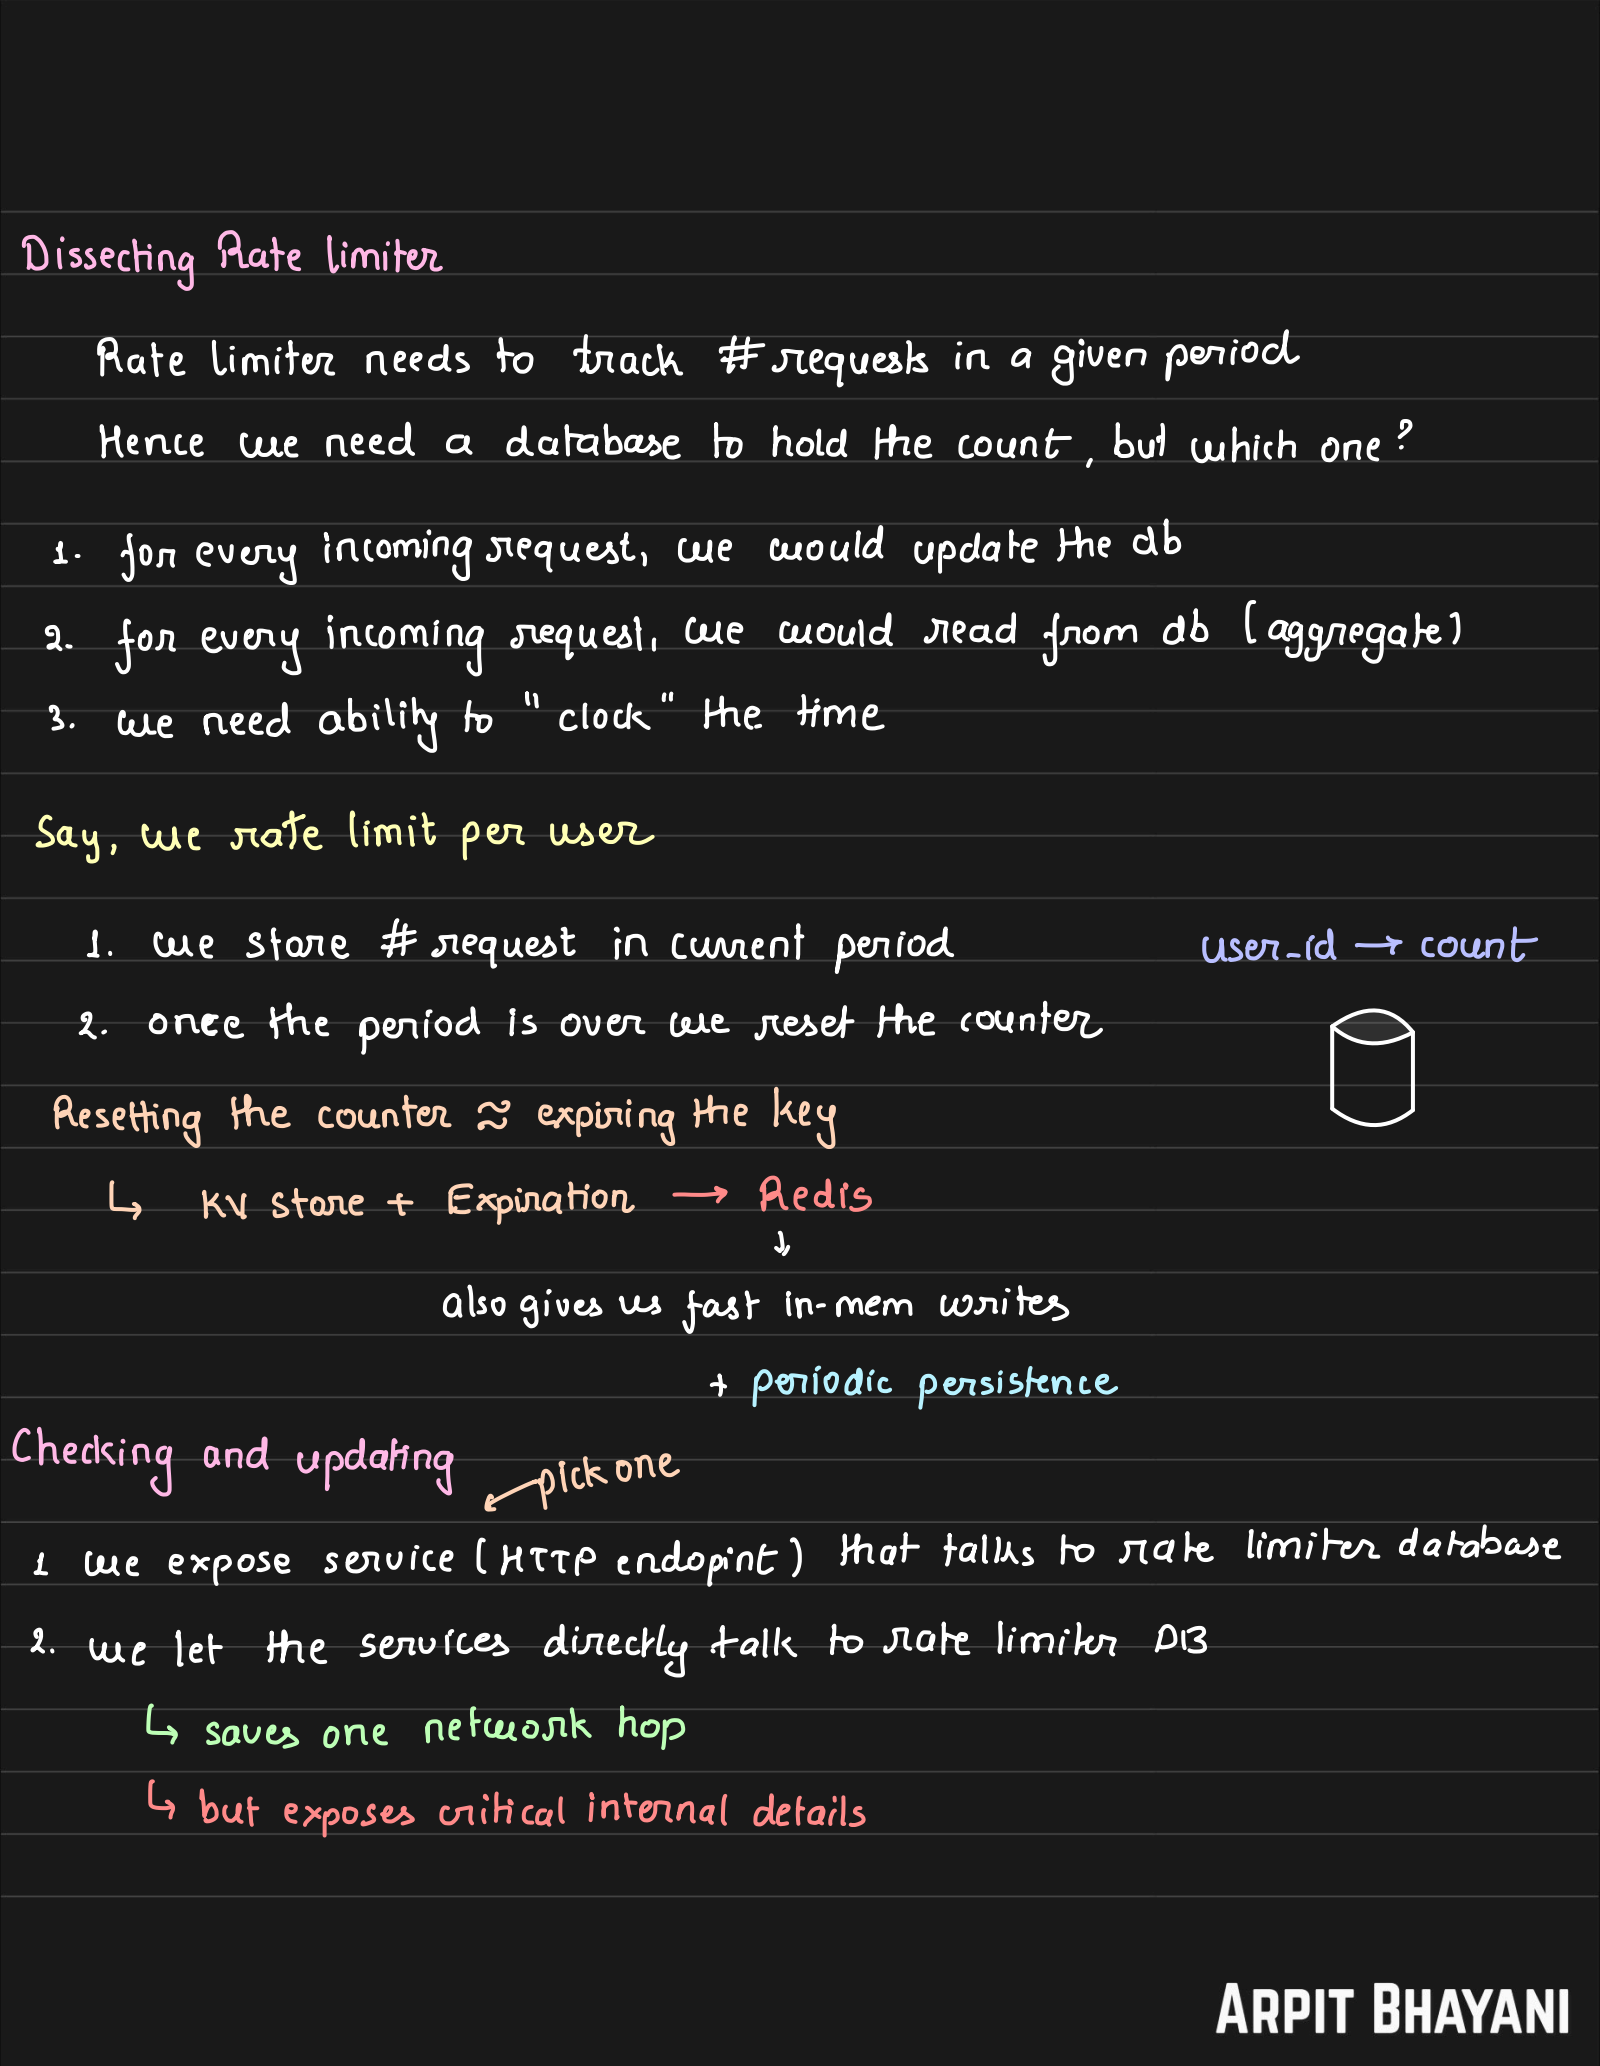 Dissecting Rate limiter
Rate limiter needs to track # requests in a given period
Hence we need a database to hold the count, but which one?
1. for every incoming request, we would update the db
2. for every incoming request, we would read from db (aggregate)
3. we need ability to "clock" the time
Say, we rate limit per user
1. we store # request in current period
user_id → count
2. once the period is over we reset the counter
Resetting the counter ≈ expiring the key
↳ KV store + Expiration → Redis
↓
also gives us fast in-mem writes
+ periodic persistence
Checking and updating
pick one
1 we expose service (HTTP endopint) that talks to rate limiter database
2. we let the services directly talk to rate limiter DB
↳ saves one network hop
↳ but exposes critical internal details
ARPIT BHAYANI